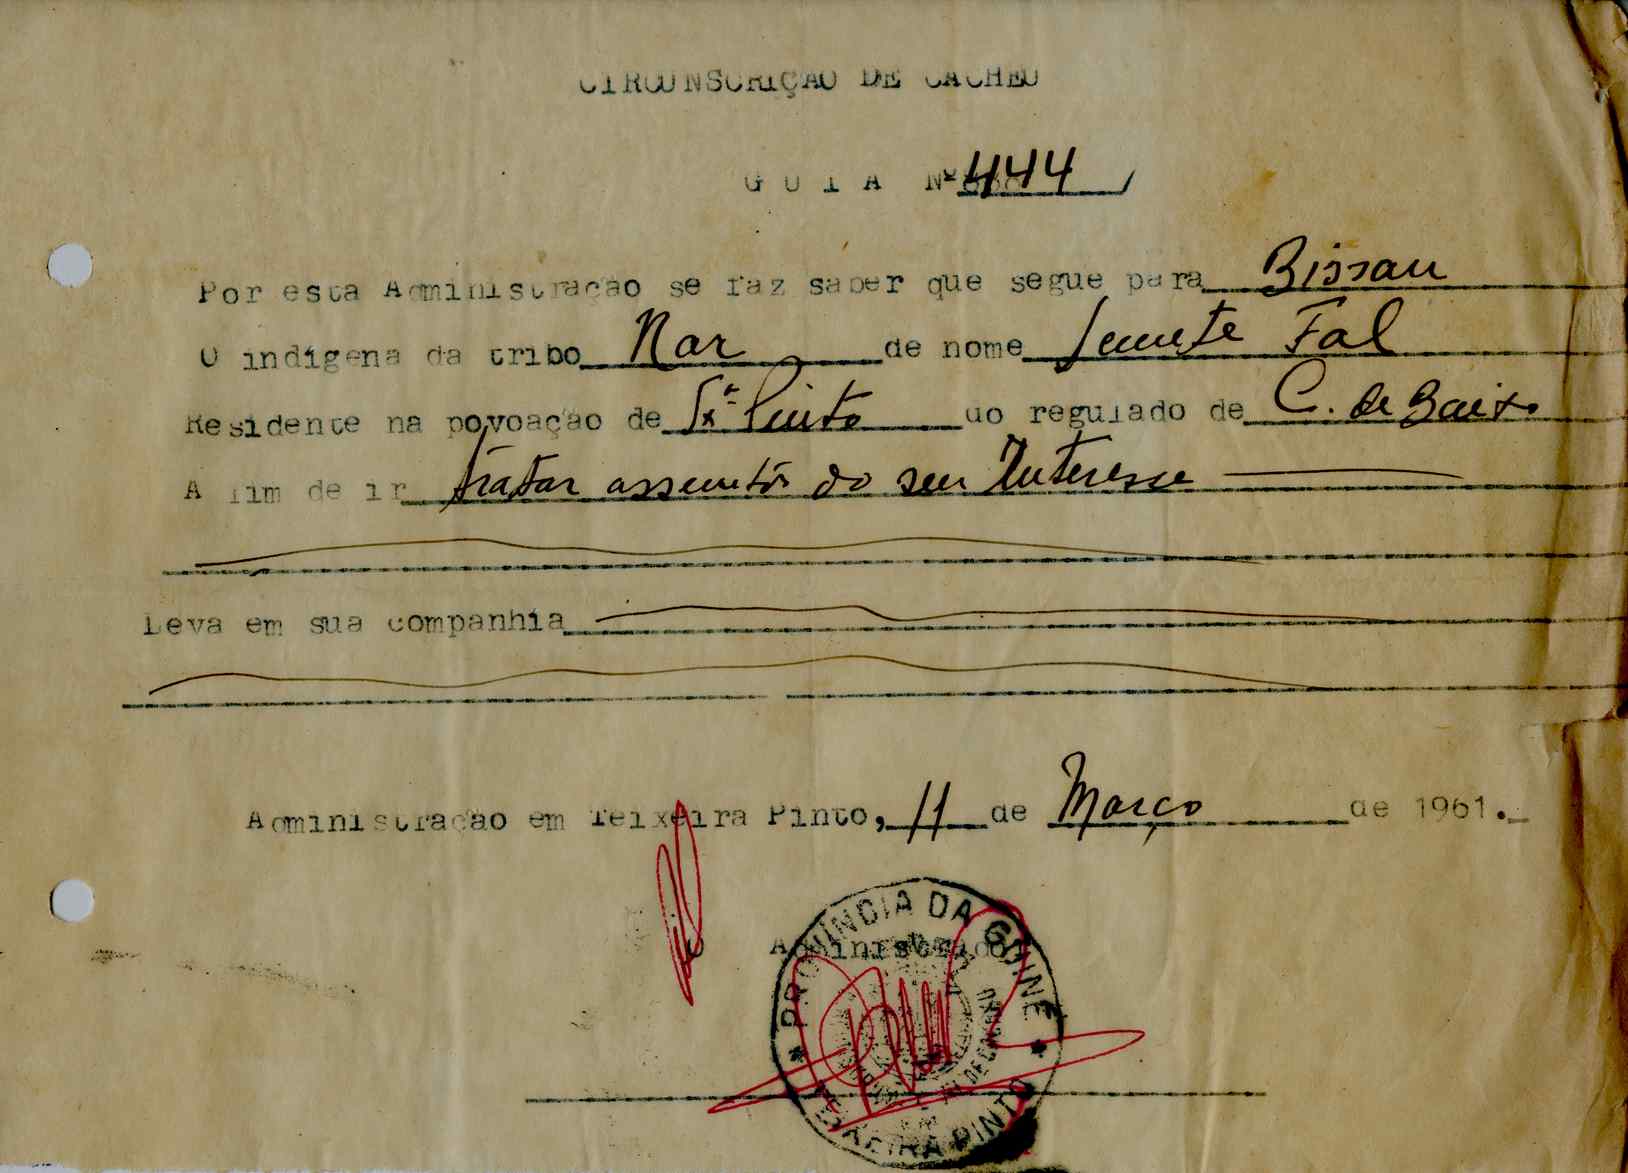 CIRCUNSCRIÇÃO DE CACHEU
GUIA Nº 444
Por esta Administração se faz saber que segue para Bissau
O indígena da tribo Nar de nome Fal
Residente na povoação de Tx.ª Pinto do regulado de C. de Baixo
A fim de ir tratar assuntos do seu Interesse
Leva em sua companhia
Administração em Teixeira Pinto, 11 de Março de 1961.
O Administrador
PROVÍNCIA DA GUINÉ
TEIXEIRA PINTO